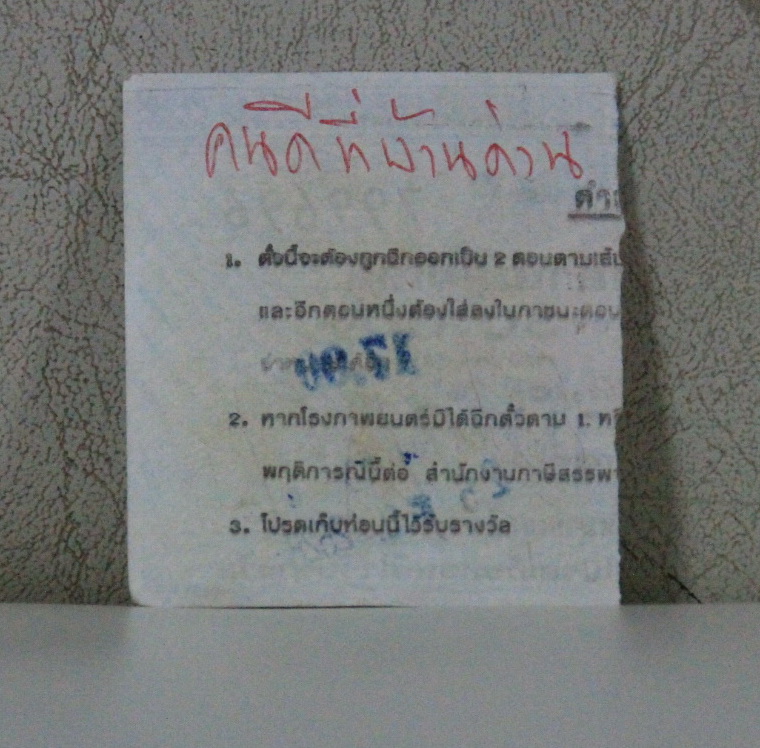 คนดีที่บ้านด่าน
คำเ
1. ตั๋วนี้จะต้องถูกฉีกออกเป็น 2 ตอนตามเส้น
และอีกตอนหนึ่งต้องใส่ลงในภาชนะตอน
2. หากโรงภาพยนตร์มิได้ฉีกตั๋วตาม 1.
พฤติการณ์นี้ต่อ สำนักงานภาษีสรรพา
3. โปรดเก็บท่อนนี้ไว้รับรางวัล